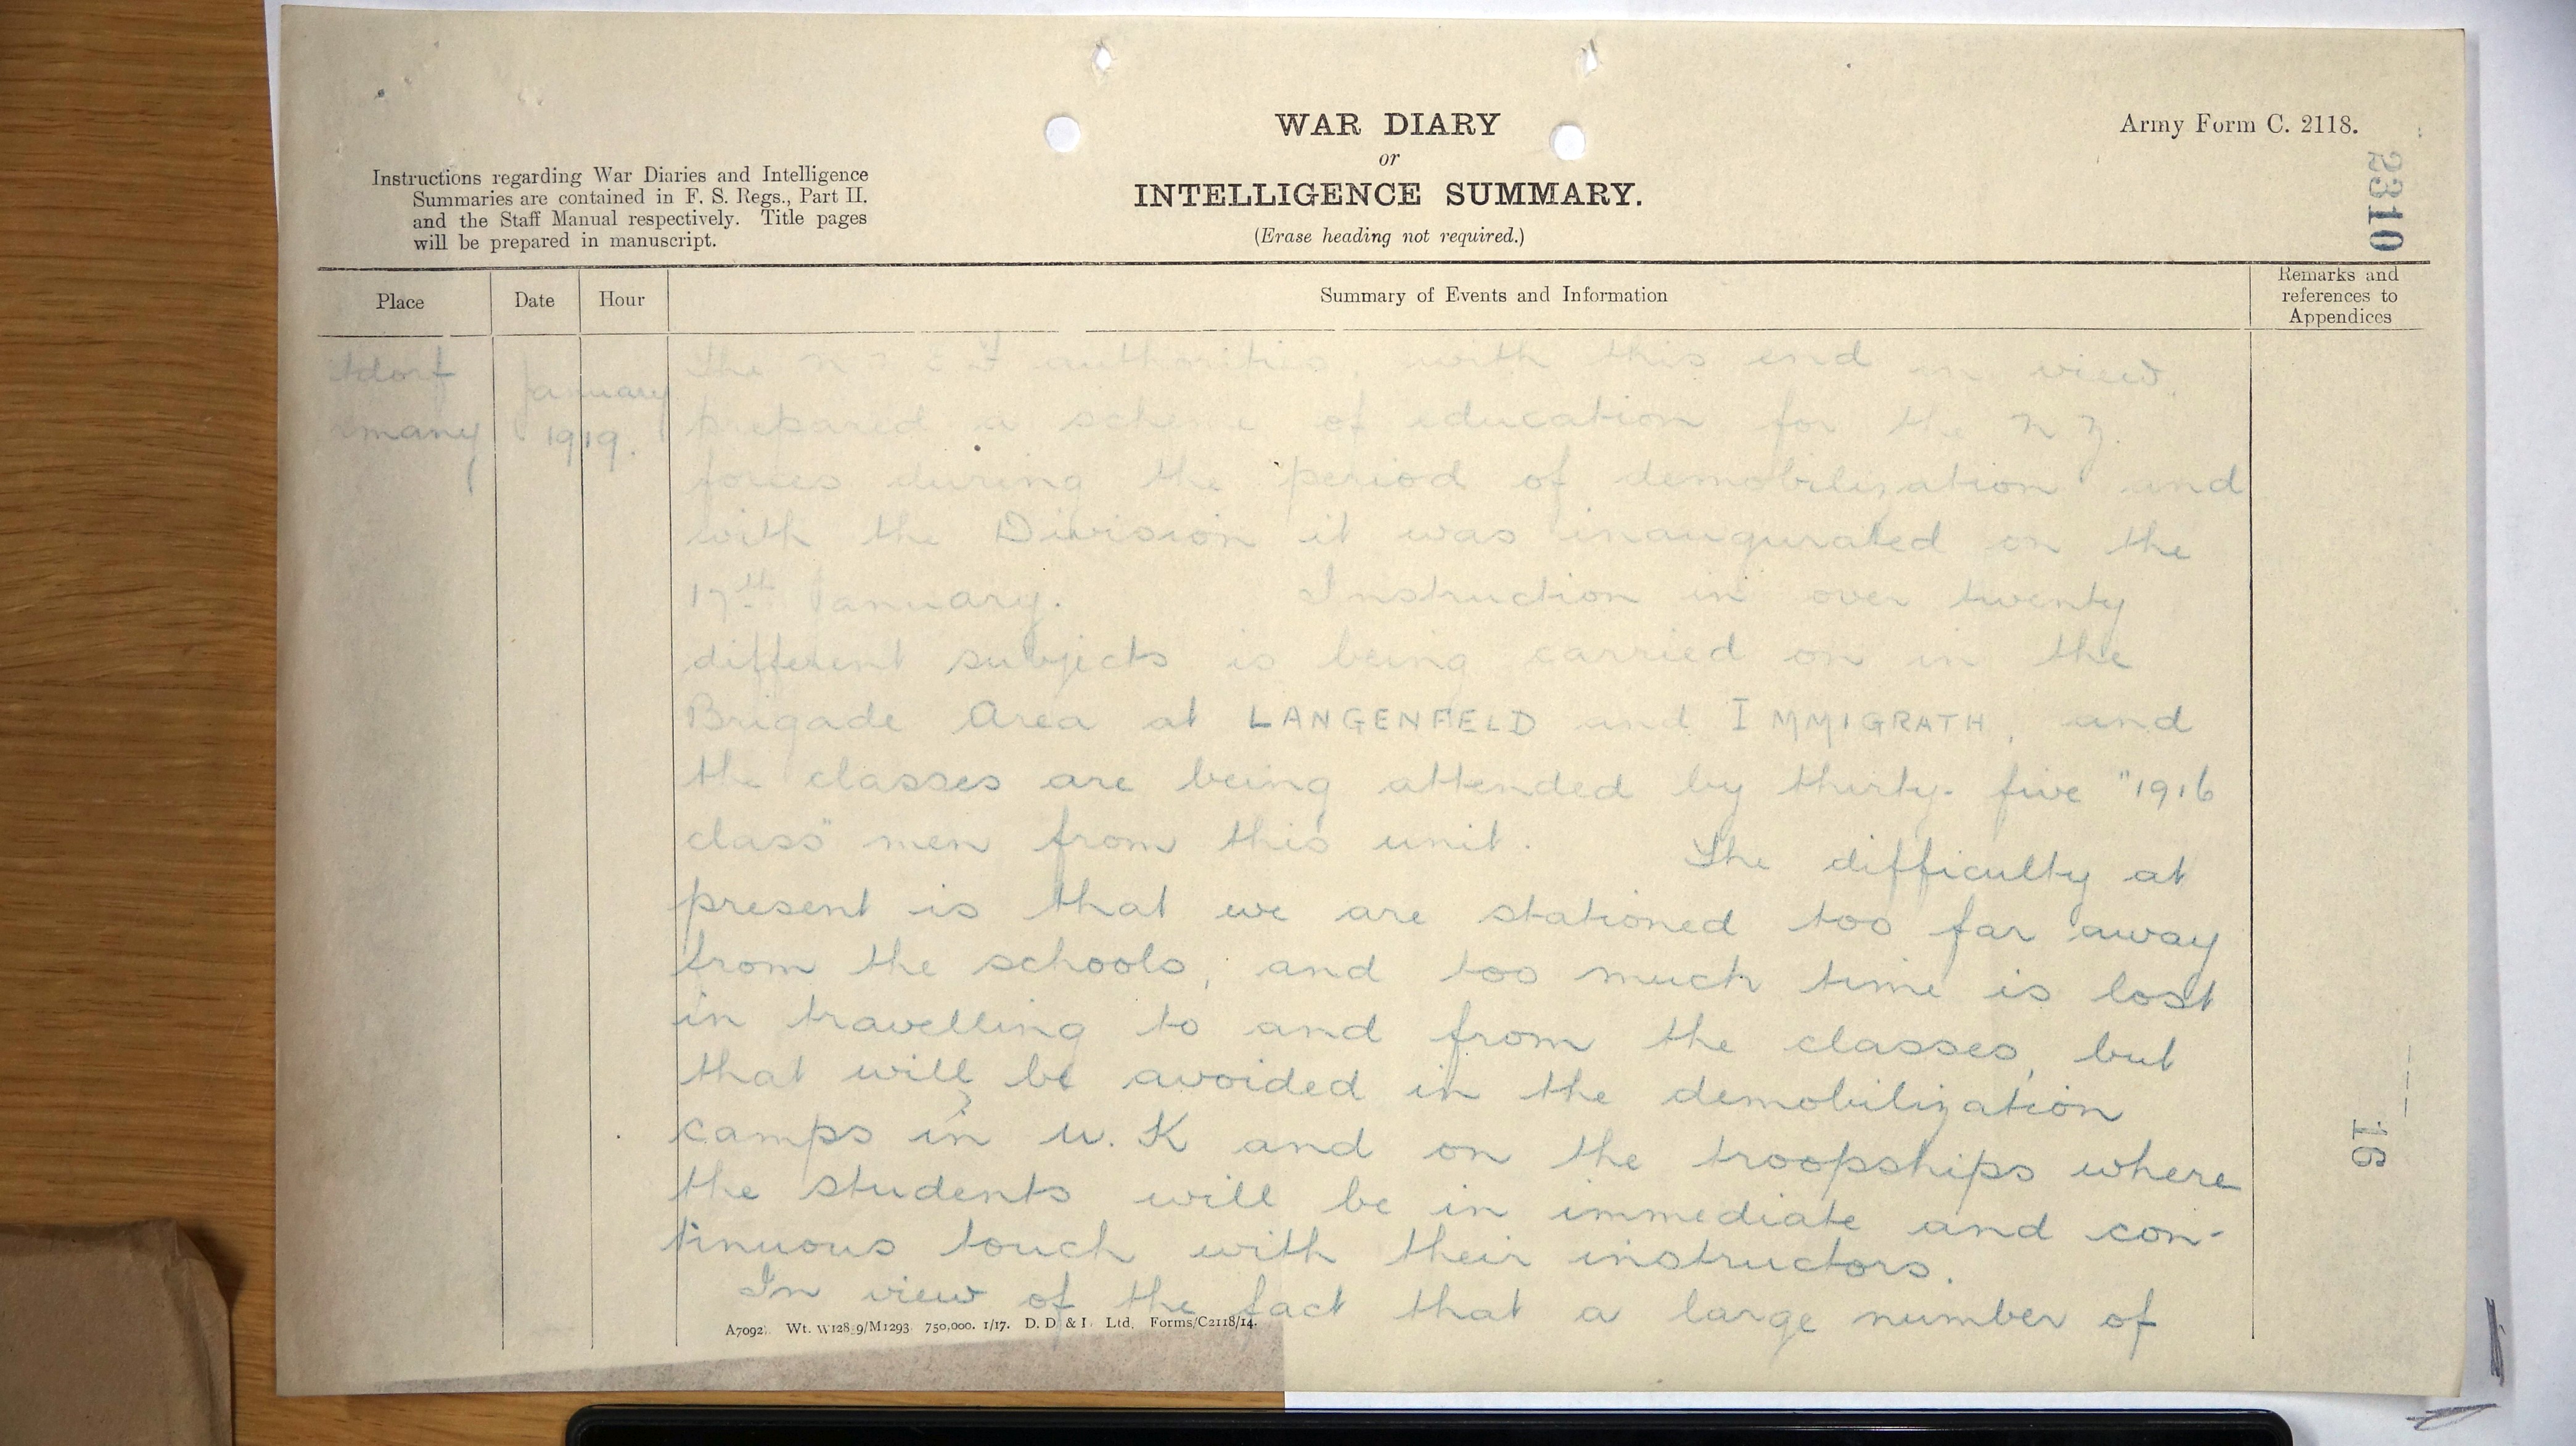 WAR DIARY
or
INTELLIGENCE SUMMARY.
(Erase heading not required.)
Army Form C. 2118.
2310
Instructions regarding War Diaries and Intelligence
Summaries are contained in F. S. Regs., Part II.
and the Staff Manual respectively. Title pages
will be prepared in manuscript.
Place Date Hour Summary of Events and Information Remarks and references to Appendices
tdorf
many
January
1919.
The N Z E F authorities, with this end in view,
prepared a scheme of education for the N Z.
forces during the period of demobilization and
with the Division it was inaugurated on the
17th January. Instruction in over twenty
different subjects is being carried on in the
Brigade Area at LANGENFIELD and IMMIGRATH, and
the classes are being attended by thirty-five "1916
class" men from this unit. The difficulty at
present is that we are stationed too far away
from the schools, and too much time is lost
in travelling to and from the classes, but
that will be avoided in the demobilization
camps in U.K and on the troopships where
the students will be in immediate and con-
tinuous touch with their instructors.
In view of the fact that a large number of
16
A7092. Wt. W128 9/M1293 750,000. 1/17. D. D & I. Ltd. Forms/C2118/14.